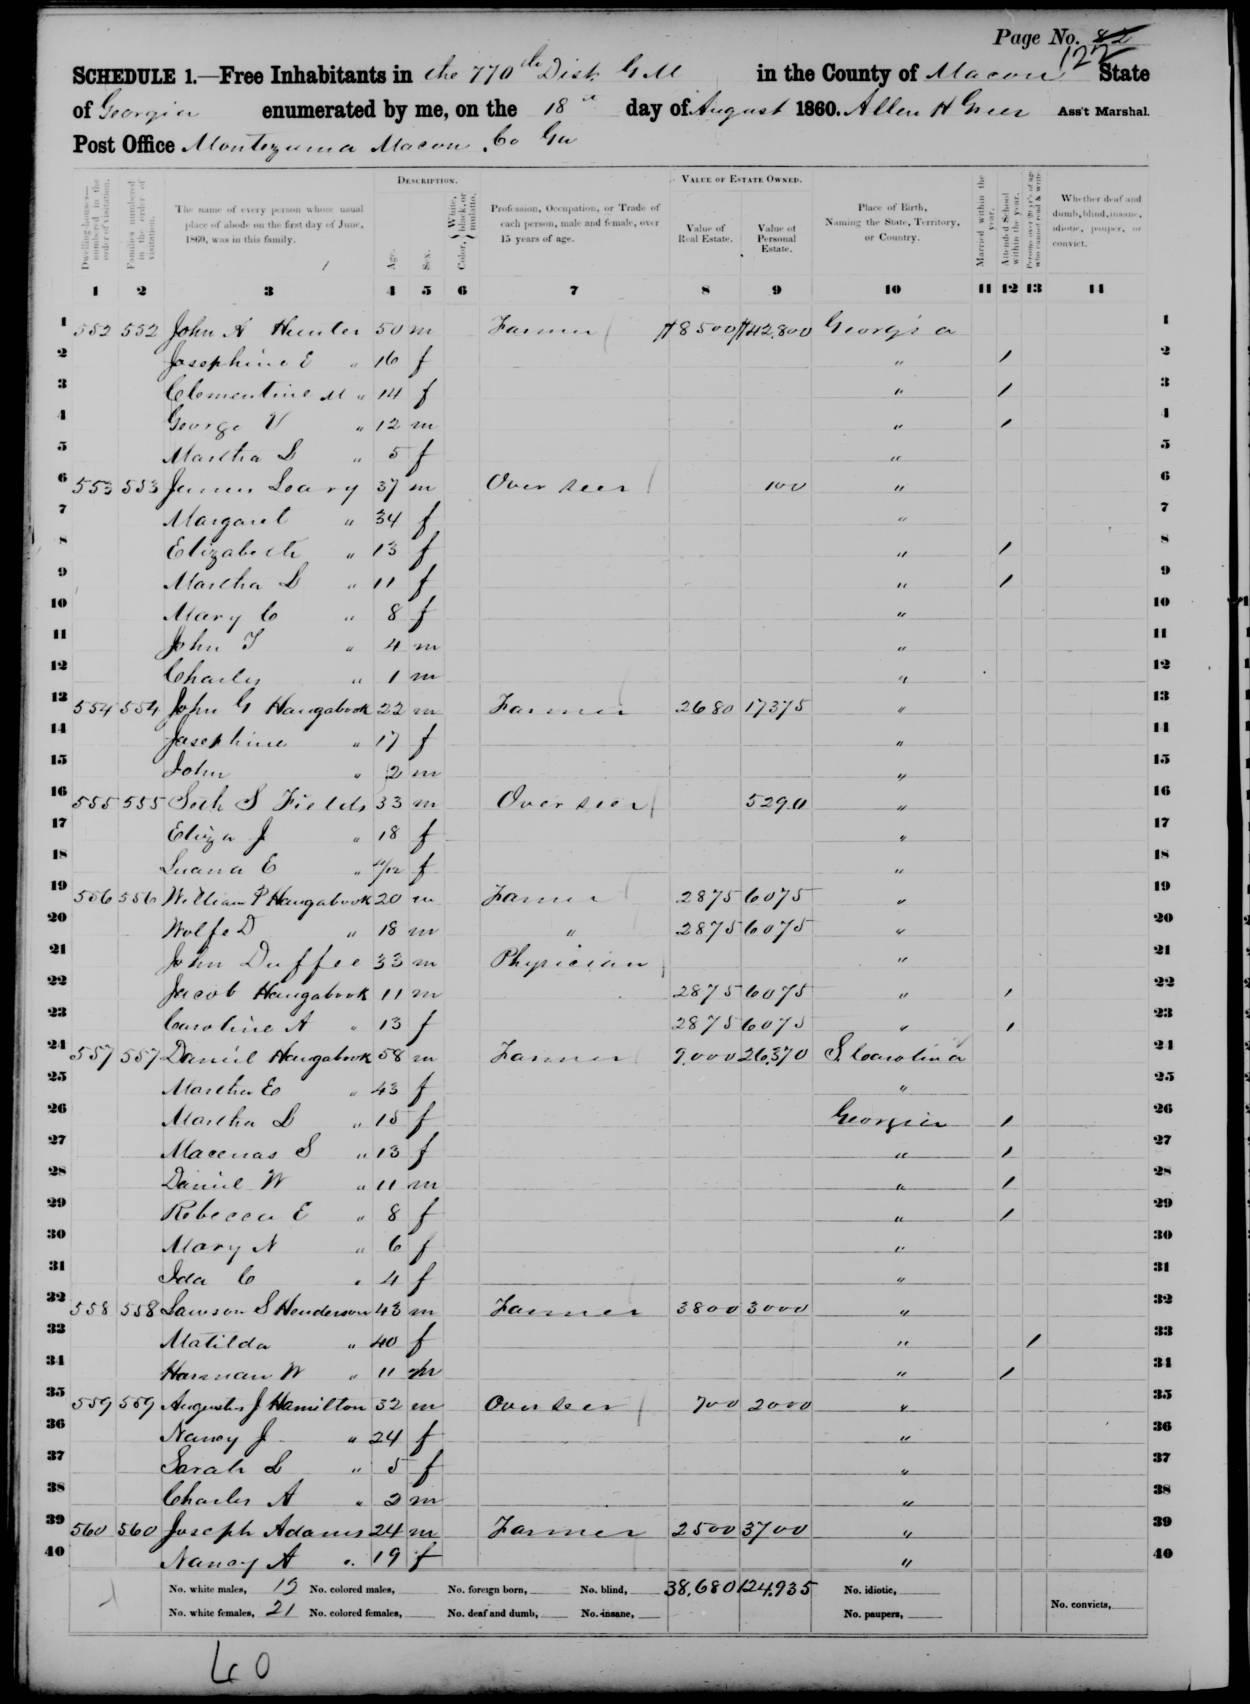 Page No. 82
122
SCHEDULE 1.—Free Inhabitants in the 770th Dist G M in the County of Macon State
of Georgia enumerated by me, on the 18th day of August 1860. Allen H Greer Ass't Marshal.
Post Office Montezuma Macon Co Ga
DESCRIPTION. VALUE OF ESTATE OWNED.
Dwelling-houses—numbered in the order of visitation. Families numbered in the order of visitation. The name of every person whose usual place of abode on the first day of June, 1860, was in this family. Age. Sex. Color, White, black, or mulatto. Profession, Occupation, or Trade of each person, male and female, over 15 years of age. Value of Real Estate. Value of Personal Estate. Place of Birth, Naming the State, Territory, or Country. Married within the year. Attended School within the year. Persons over 20 y'rs of age who cannot read & write. Whether deaf and dumb, blind, insane, idiotic, pauper, or convict.
1 2 3 4 5 6 7 8 9 10 11 12 13 14
1 552 552 John A Hunter 50 m Farmer $8500 $42,800 Georgia 1
2 Josephine E " 16 f " / 2
3 Clementine M " 14 f " / 3
4 George V " 12 m " / 4
5 Martha L " 5 f " 5
6 553 553 James Leary 37 m Over seer 100 " 6
7 Margaret " 34 f " 7
8 Elizabeth " 13 f " / 8
9 Martha L " 11 f " / 9
10 Mary C " 8 f " 10
11 John T " 4 m " 11
12 Charley " 1 m " 12
13 554 554 John G Haugabook 22 m Farmer 2680 17375 " 13
14 Josephine " 17 f " 14
15 John " 2 m " 15
16 555 555 Seth S Fields 33 m Over seer 5290 " 16
17 Eliza J " 18 f " 17
18 Luana E " /12 f " 18
19 556 556 William P Haugabook 20 m Farmer 2875 6075 " 19
20 Wolfe D " 18 m " 2875 6075 " 20
21 John Duffee 33 m Physician " 21
22 Jacob Haugabook 11 m 2875 6075 " / 22
23 Caroline A " 13 f 2875 6075 " / 23
24 557 557 Daniel Haugabook 58 m Farmer 9,000 26,370 S. Carolina 24
25 Martha E " 43 f " 25
26 Martha L " 15 f Georgia / 26
27 Macenas S " 13 f " / 27
28 Daniel W " 11 m " / 28
29 Rebecca E " 8 f " / 29
30 Mary N " 6 f " 30
31 Ida C " 4 f " 31
32 558 558 Lawson S Henderson 43 m Farmer 3800 3000 " 32
33 Matilda " 40 f " / 33
34 Harman W " 11 m " / 34
35 559 559 Augustus J Hamilton 32 m Over seer 700 2000 " 35
36 Nancy J " 24 f " 36
37 Sarah L " 5 f " 37
38 Charles A " 2 m " 38
39 560 560 Joseph Adams 24 m Farmer 2500 3700 " 39
40 Nancy A " 19 f " 40
No. white males, 19 No. colored males, No. foreign born, No. blind, 38,680 124,935 No. idiotic,
No. white females, 21 No. colored females, No. deaf and dumb, No. insane, No. paupers, No. convicts,
40